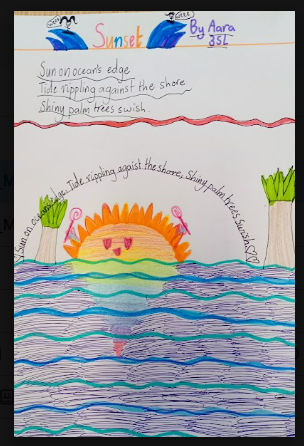 Sunset
By Aara
3SL
Sun on ocean's edge
Tide rippling against the shore
Shiny palm trees swish.
Sun on edge, Tide rippling agaist the shore, Shiny palm trees Swish